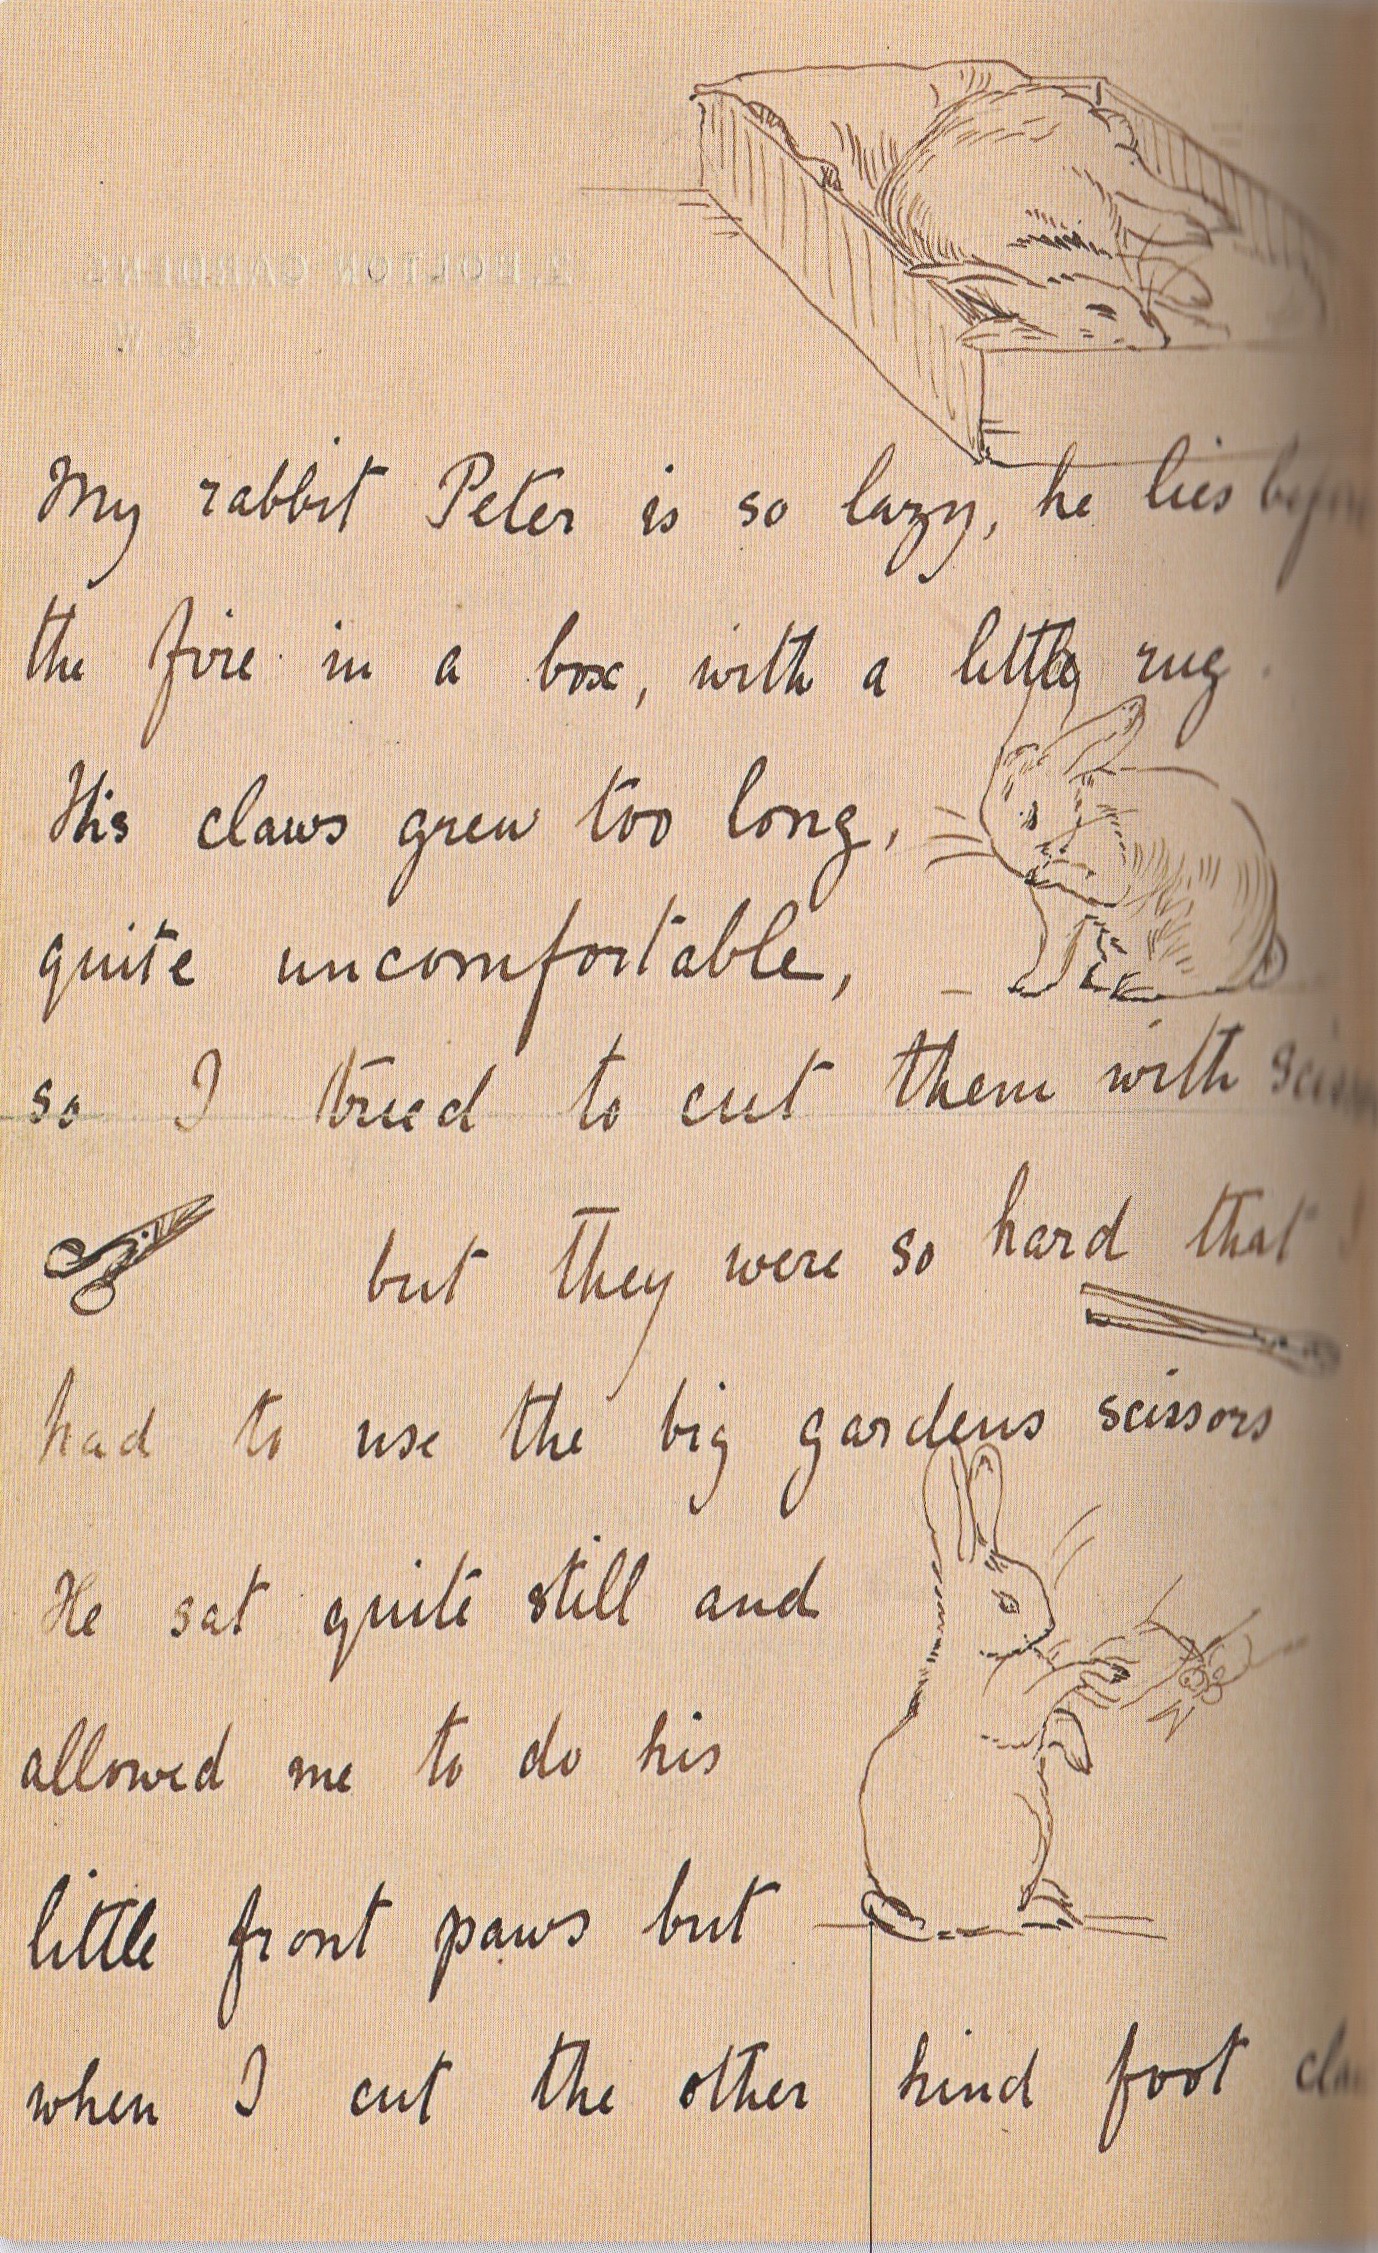 2, BOLTON GARDENS
S W
My rabbit Peter is so lazy, he lies before
the fire in a box, with a little rug.
His claws grew too long,
quite uncomfortable,
so I tried to cut them with
but they were so hard that I
had to use the big gardens scissors
He sat quite still and
allowed me to do his
little front paws but
when I cut the other hind foot